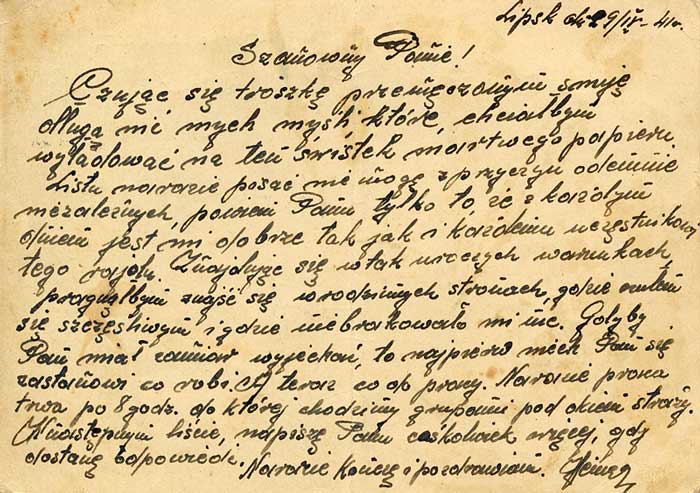 Lipsk dn. 29/IV - 41r.
Szanowny Panie!
Czując się troszkę przemęczonym snuję
długą nić mych myśli które, chciałbym
wyładować na ten świstek martwego papieru.
Listu narazie posłać nie mogę z przyczyn odemnie
niezależnych, powiem Panu tylko to, że z każdym
dniem jest mi dobrze tak jak i każdemu uczęstnikowi
tego rajdu. Znajduję się w tak uroczych warunkach,
pragnąłbym znajść się w rodzinnych stronach, gdzie czułem
się szczęśliwym i gdzie niebrakowało mi nic. Gdyby
Pan miał zamiar wyjechać, to najpierw niech Pan się
zastanowi co robi. A teraz co do pracy. Narazie praca
trwa po 8 godz. do której chodzimy grupami pod okiem straży.
W następnym liście, napiszę Panu cośkolwiek więcej, gdy
dostanę odpowiedź.
Narazie kończę i pozdrawiam.